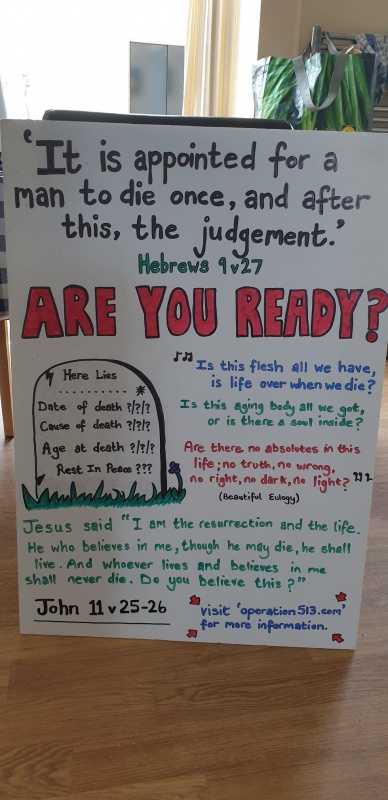 ‘It is appointed for a
man to die once, and after
this, the judgement.’
Hebrews 9v27
ARE YOU READY?
Here Lies
Date of death ?/?/?
Cause of death ?/?/?
Age at death ?/?/?
Rest In Peace ???
Is this flesh all we have,
is life over when we die?
Is this aging body all we got,
or is there a soul inside?
Are there no absolutes in this
life; no truth, no wrong,
no right, no dark, no light?
(Beautiful Eulogy)
Jesus said “I am the resurrection and the life.
He who believes in me, though he may die, he shall
live. And whoever lives and believes in me
shall never die. Do you believe this?”
John 11 v 25-26
visit ‘operation513.com’
for more information.